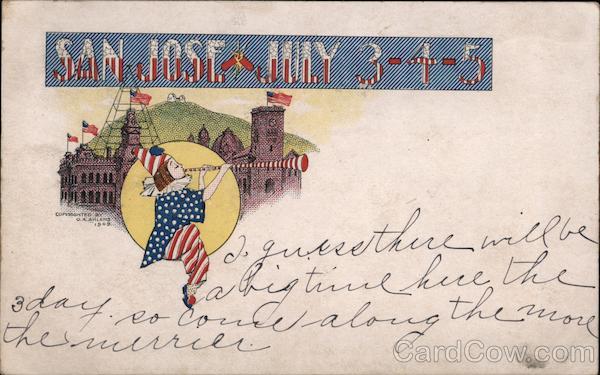 SAN JOSE JULY 3-4-5
COPYRIGHTED BY
O.A. AHLERS
I guess there will be
a big time here the
3 day. so come along the more
the merrier.
CardCow.com